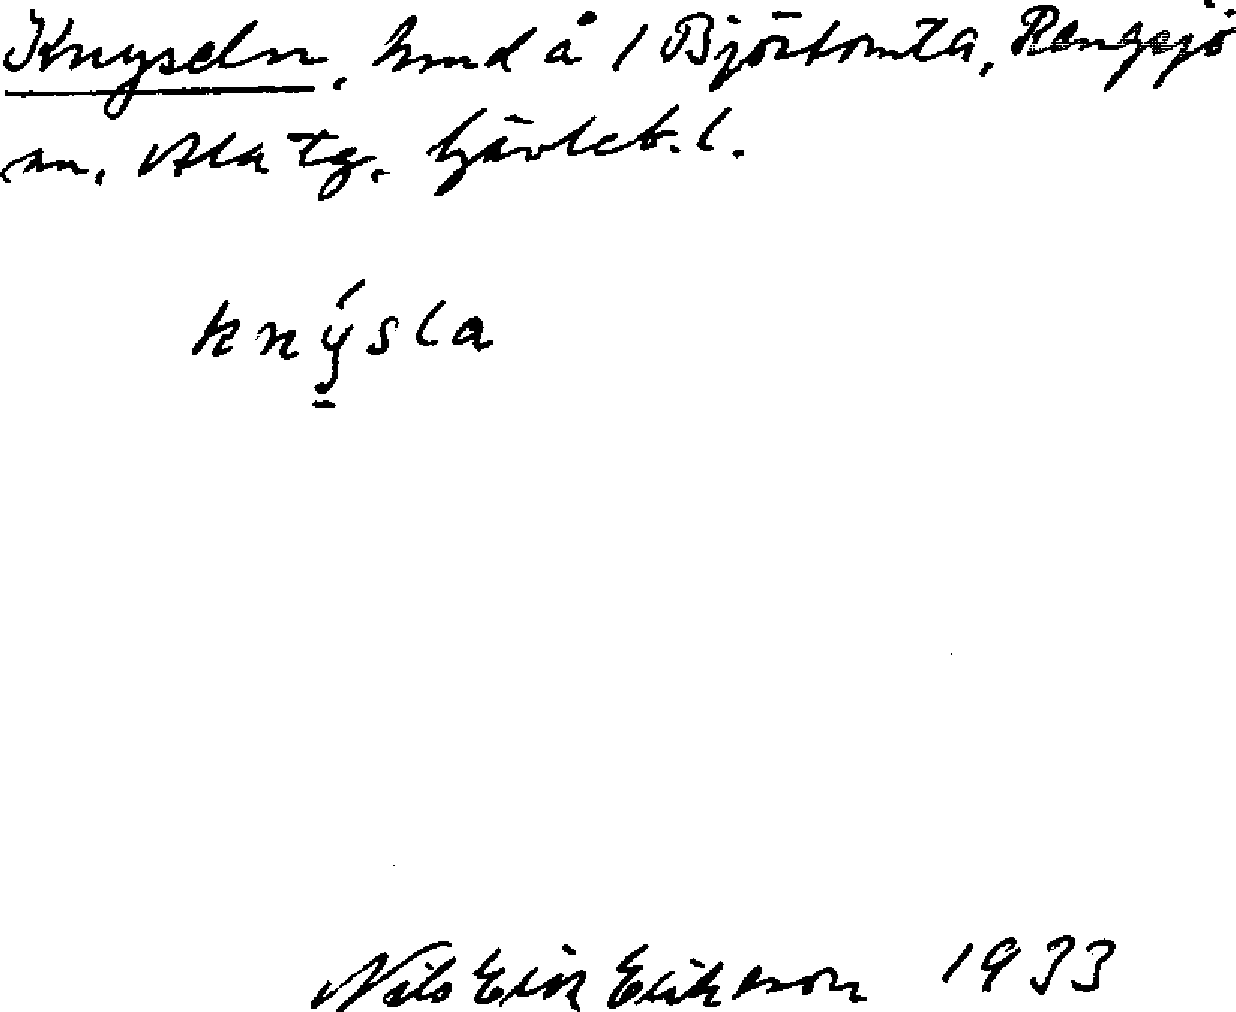 Knyseln, hmd å 1 Björtomta, Rengsjö
sn, Ala tg. Gävleb. l.
knýsla
Nils Erik Erikson 1933